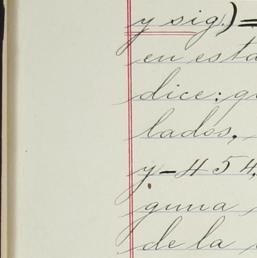 y sig.)=
en esta
dice: qu
lados,
y-454,
guna
de la